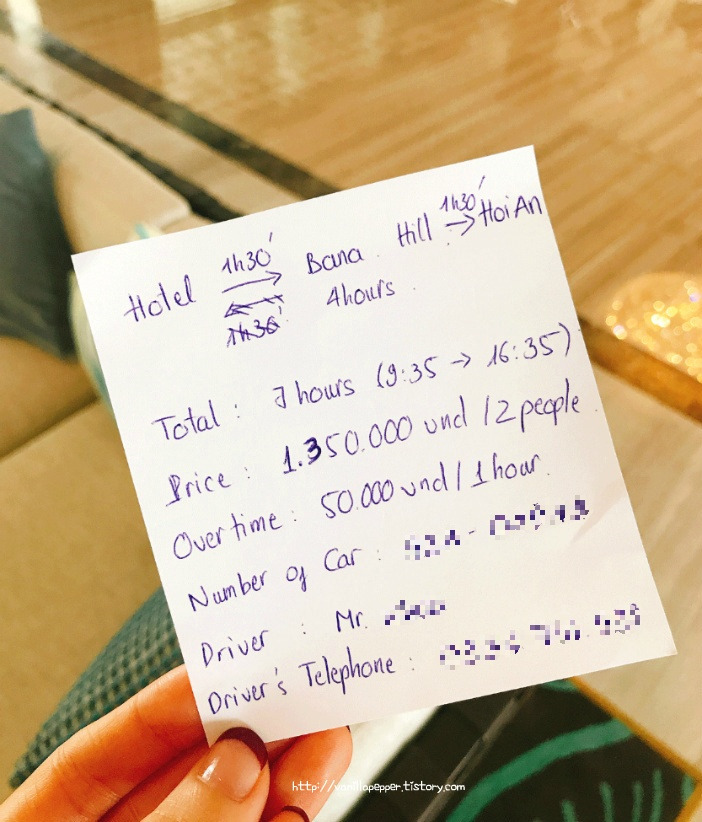 1h30'
Hotel → Bana Hill → Hoi An
1h30'
4hours
1h30'
Total : 7 hours (9:35 → 16:35)
Price : 1.350.000 vnd / 2 people
Over time : 50.000 vnd / 1 hour.
Number of Car :
Driver : Mr.
Driver's Telephone :
http://vanillapepper.tistory.com